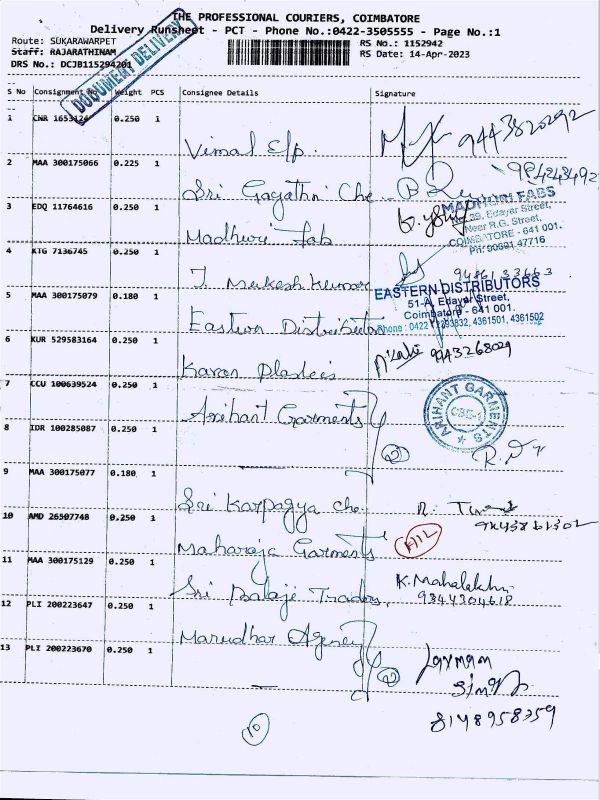 THE PROFESSIONAL COURIERS, COIMBATORE
Delivery Runsheet - PCT - Phone No.:0422-3505555 - Page No.:1
Route: SUKARAWARPET
RS No.: 1152942
Staff: RAJARATHINAM
RS Date: 14-Apr-2023
DRS No.: DCJB115294201
DOCUMENT DELIVERY
S No Consignment No Weight PCS Consignee Details Signature
1 CNR 1653124 0.250 1
Vimal E/p. 9443820292
2 MAA 300175066 0.225 1
Sri Gayathri Che
3 EDQ 11764616 0.250 1
MADHURI FABS
No.39, Edayar Street,
Near R.G. Street,
COIMBATORE - 641 001.
Ph: 90691 47716
Madhuri Fab
4 KTG 7136745 0.250 1
T. Mukesh Kumar 9486133663
5 MAA 300175079 0.180 1
EASTERN DISTRIBUTORS
51-A, Edayar Street,
Coimbatore - 641 001.
Eastern Distributor
6 KUR 529583164 0.250 1
Karan Plastics 9443268029
7 CCU 100639524 0.250 1
Arihant Garments
ARIHANT GARMENTS
CBE-1
8 IDR 100285087 0.250 1
2
9 MAA 300175077 0.180 1
Sri Karpagya Che
10 AMD 26507748 0.250 1
Maharaja Garments
11 MAA 300175129 0.250 1
Sri Balaje Traders, K. Mahalakshmi
9844304618
12 PLI 200223647 0.250 1
Marudhar Agency
13 PLI 200223670 0.250 1
2
Laxman
Singh
8148958359
10